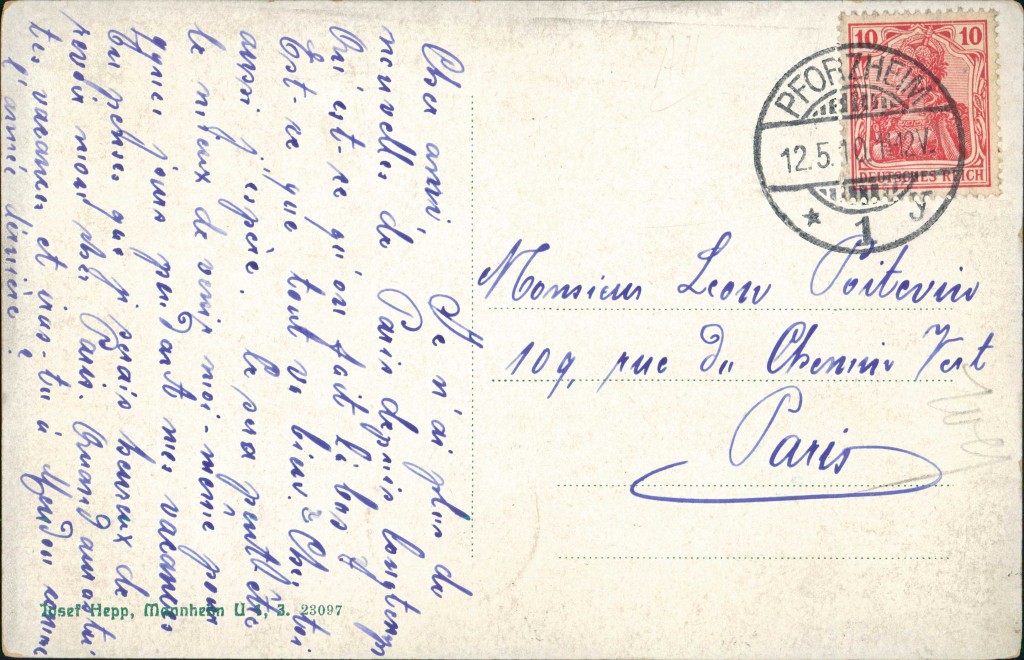 Cher ami, Je n'ai plus de
nouvelles de Paris depuis longtemps
Qui est-ce qu'on fait là bas ?
Est-ce que tout va bien ? Chez toi
aussi j'espère. Ce sera peut être
le mieux de venir moi-même pour
jours pendant mes vacances
Tu penses que je serais heureux de
revoir mon cher Paris. Quand auras tu
tes vacances et iras-tu à Meudon comme
l'année dernière ?
Monsieur Leon Poitevin
109, rue du Chemin Vert
Paris
10 10
DEUTSCHES REICH
PFORZHEIM
12.5.10. 11-12V.
* 1
Josef Hepp, Mannheim U 4, 3. 23097